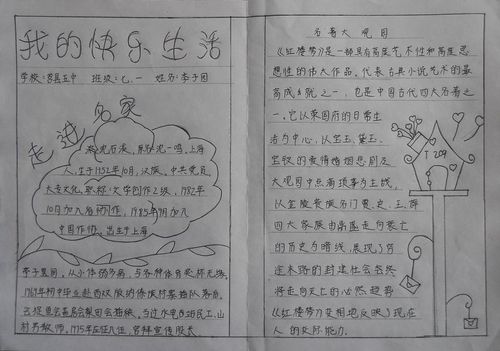 我的快乐生活
学校:莒县五中 班级:七.一 姓名:李子园
走进名家
人,生于1952年10月,汉族。中共党员,
大专文化,职称:文学创作2级,1982年
10月加入省作协,1985年9月加入
中国作协。出生于上海
李子园,从小体弱多病,与各种体育奖杯无缘。
1969年初中毕业赴西双版
村男教师。1975年应征入伍,官拜宣传股长。
名著大观园
《红楼梦》是一部具有高度艺术性和高度思
想性的伟大作品。代表古典小说艺术的最
高成就之一,也是中国古代四大名著之
一。它以荣国府的日常生
活为中心,以宝玉、黛玉、
宝钗的爱情婚姻悲剧及
大观园中点滴琐事为主线,
以金陵贵族名门贾、史、王、薛
四大家族由鼎盛走向衰亡
的历史为暗线,展现了穷
途末路的封建社会终
将走向灭亡的必然趋势
人的交际能力.
T 209